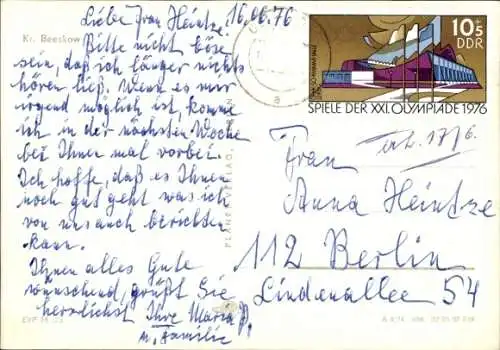 Liebe Frau Heintze! 16.06.76
Kr. Beeskow
Bitte nicht böse
sein, daß ich länger nichts
hören ließ. Wenn es nur
irgend möglich ist, komme
ich in der nächsten Woche
bei Ihnen mal vorbei.
Ich hoffe, daß es Ihnen
noch gut geht was ich
von uns auch berichten
kann.
Ihnen alles Gute
wünschend, grüßt Sie
herzlichst Ihre Maria P.
u. Familie
10+5
DDR
SPIELE DER XXI. OLYMPIADE 1976
erh. 17/6.
Frau
Anna Heintze
112 Berlin
Lindenallee 54